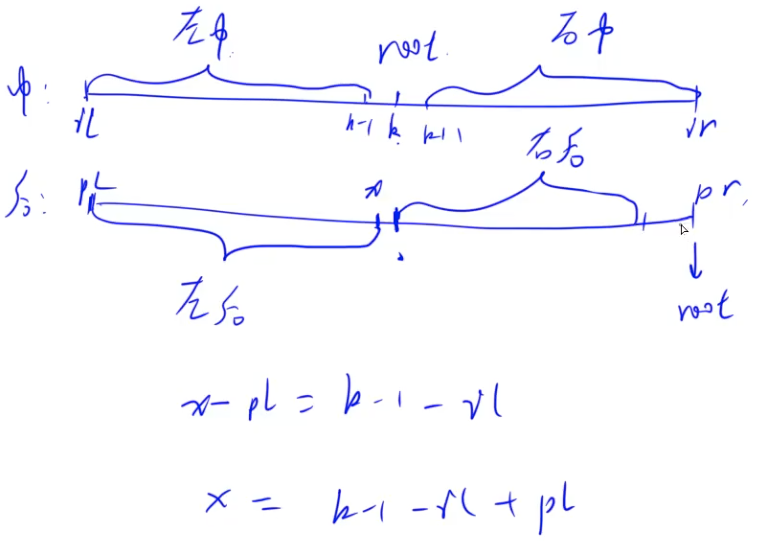 左中 root 右中
中:
il k-1 k k+1 ir
右后
后: pL x pr
左后 root
x - pl = k - 1 - il
x = k-1 - il + pl